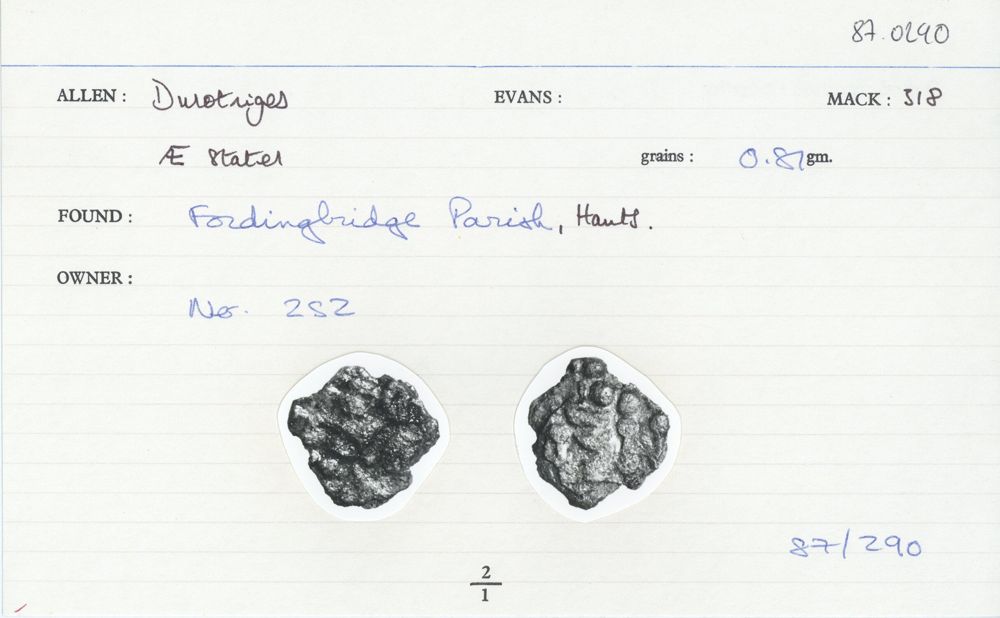 87.0290
ALLEN: Durotriges EVANS: MACK: 318
Æ stater grains: 0.87 gm.
FOUND: Fordingbridge Parish, Hants.
OWNER:
No. 252
87/290
2
1